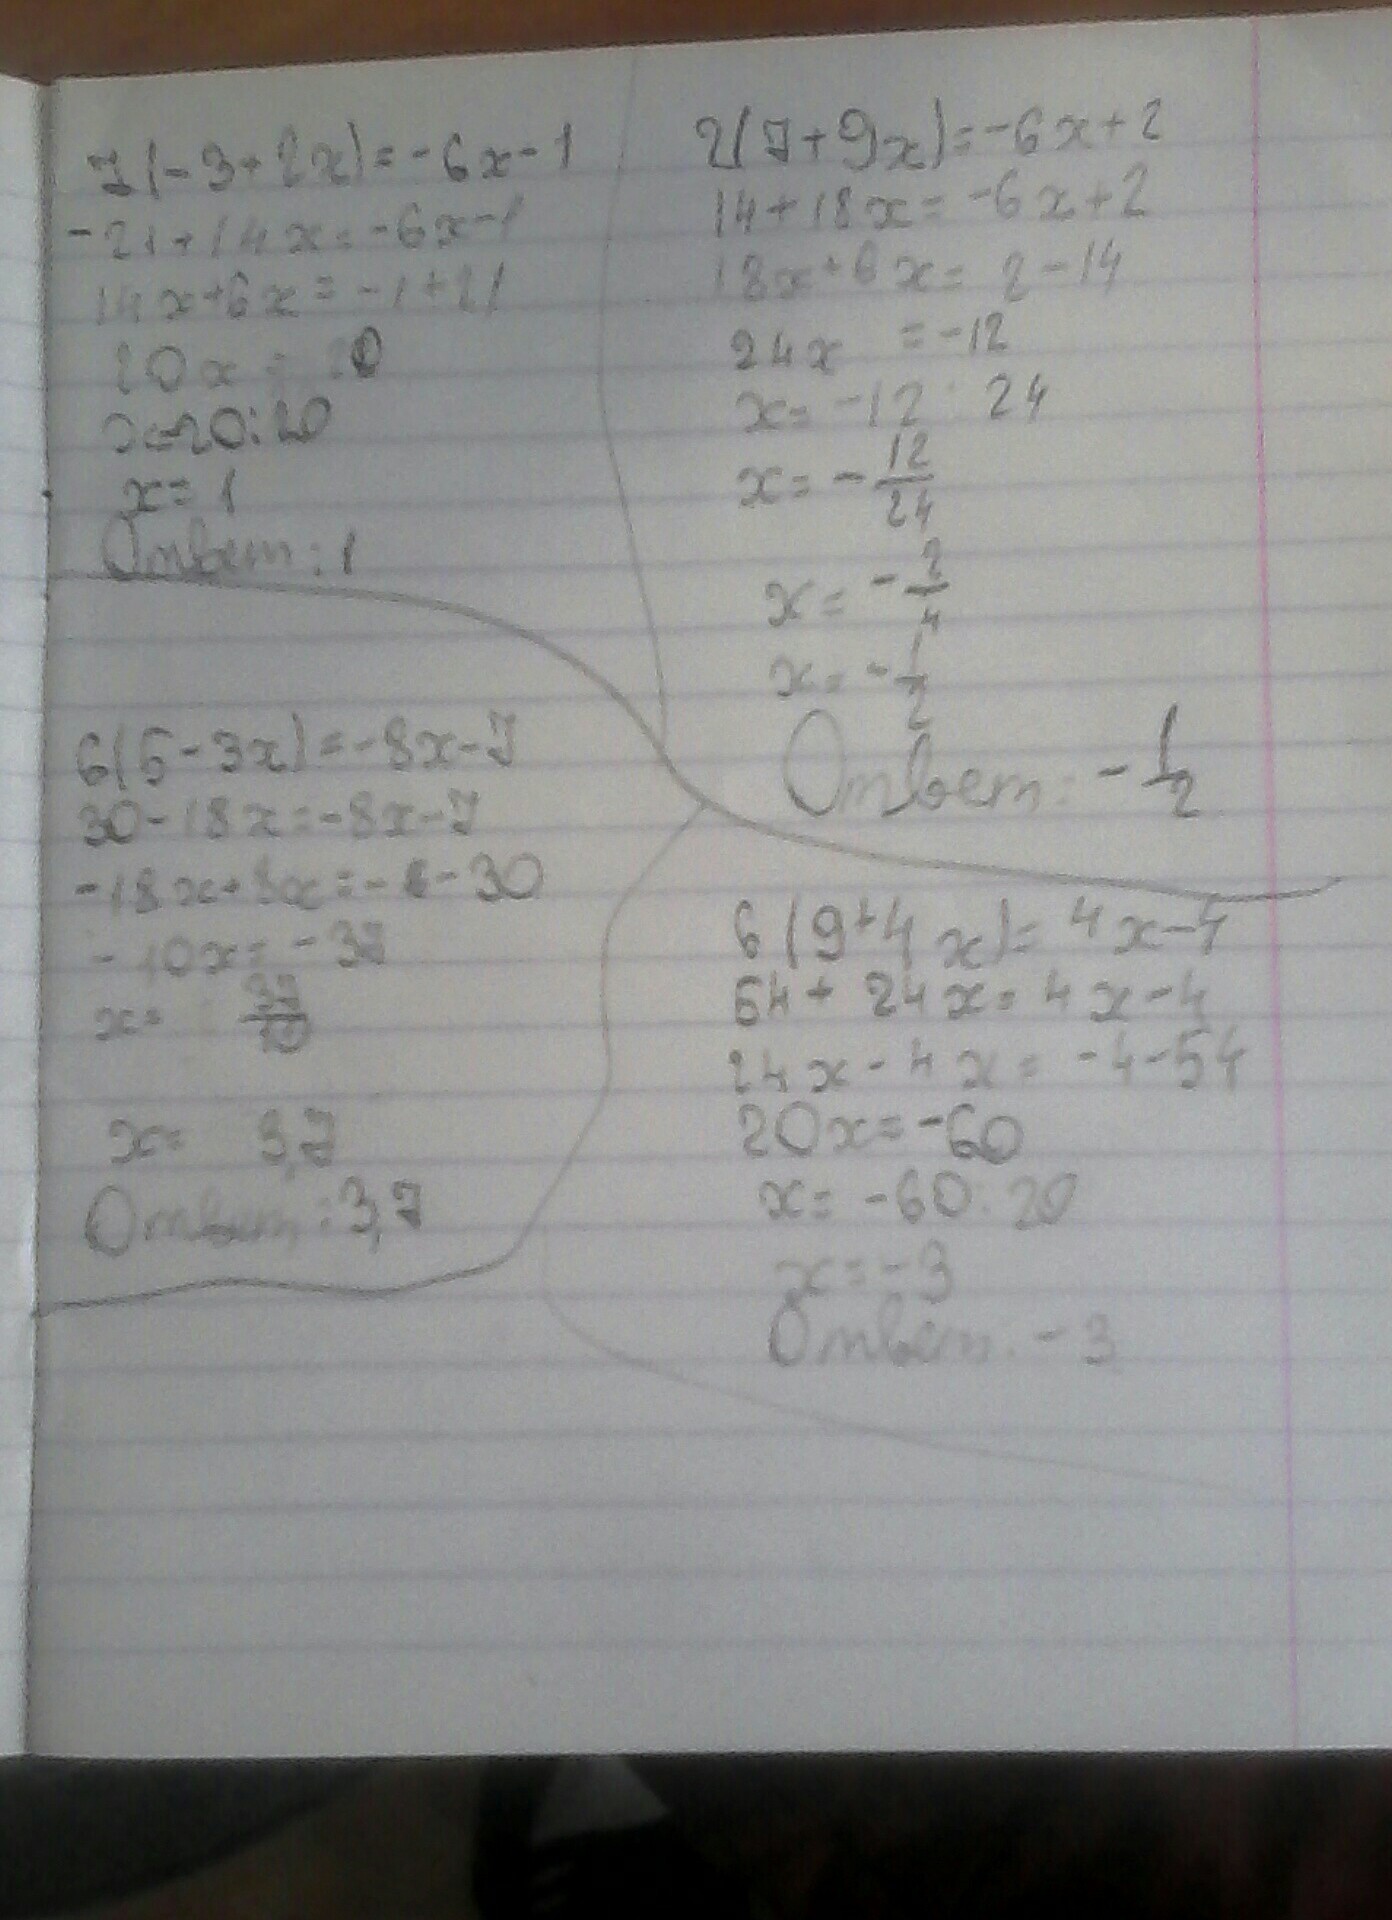 7(-3+2x)=-6x-1
-21+14x=-6x-1
14x+6x=-1+21
20x=20
x=20:20
x=1
Ответ: 1
2(7+9x)=-6x+2
14+18x=-6x+2
18x+6x=2-14
24x=-12
x=-12:24
x=-12/24
x=-2/4
x=-1/2
Ответ: -1/2
6(5-3x)=-8x-7
30-18x=-8x-7
-18x+8x=- -30
-10x=-37
x=37/10
x=3,7
Ответ: 3,7
6(9+4x)=4x-4
54+24x=4x-4
24x-4x=-4-54
20x=-60
x=-60:20
x=-3
Ответ: -3